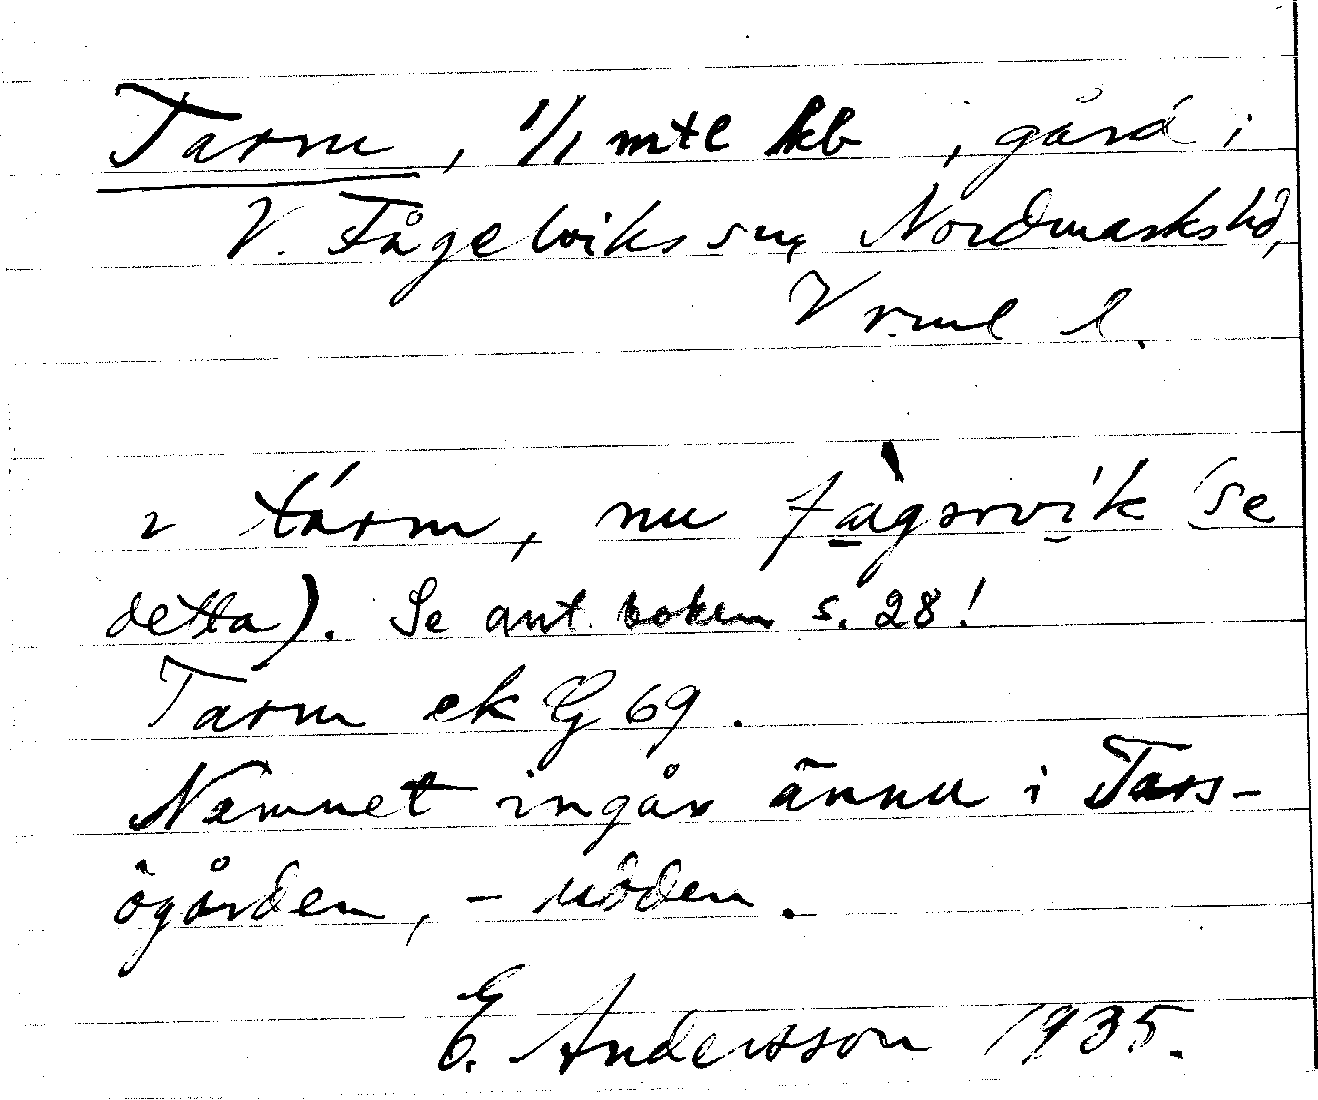 Tarm, 1/1 mtl kb, gård i
V. Fågelviks sn, Nordmarks hd,
Vrml l.
tárm, nu fàgərvik (se
detta). Se ant. boken s. 28!
Tarm ek G 69.
Namnet ingår ännu i Tars-
ögården, -
E. Andersson 1935.